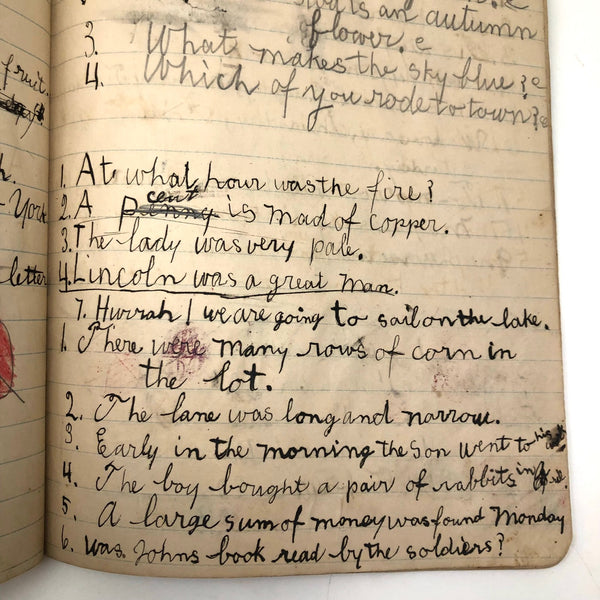 is an autumn
flower. e
3. What makes the sky blue? e
4. Which of you rode to town? e
fruit.
day
York
letter
1. At what hour was the fire?
2. A penny cent is mad of copper.
3. The lady was very pale.
4. Lincoln was a great man.
7. Hurrah! we are going to sail on the lake.
1. There were many rows of corn in
the lot.
2. The lane was long and narrow.
3. Early in the morning the son went to his
4. The boy bought a pair of rabbits in
5. A large sum of money was found Monday
6. was Johns book read by the soldiers?